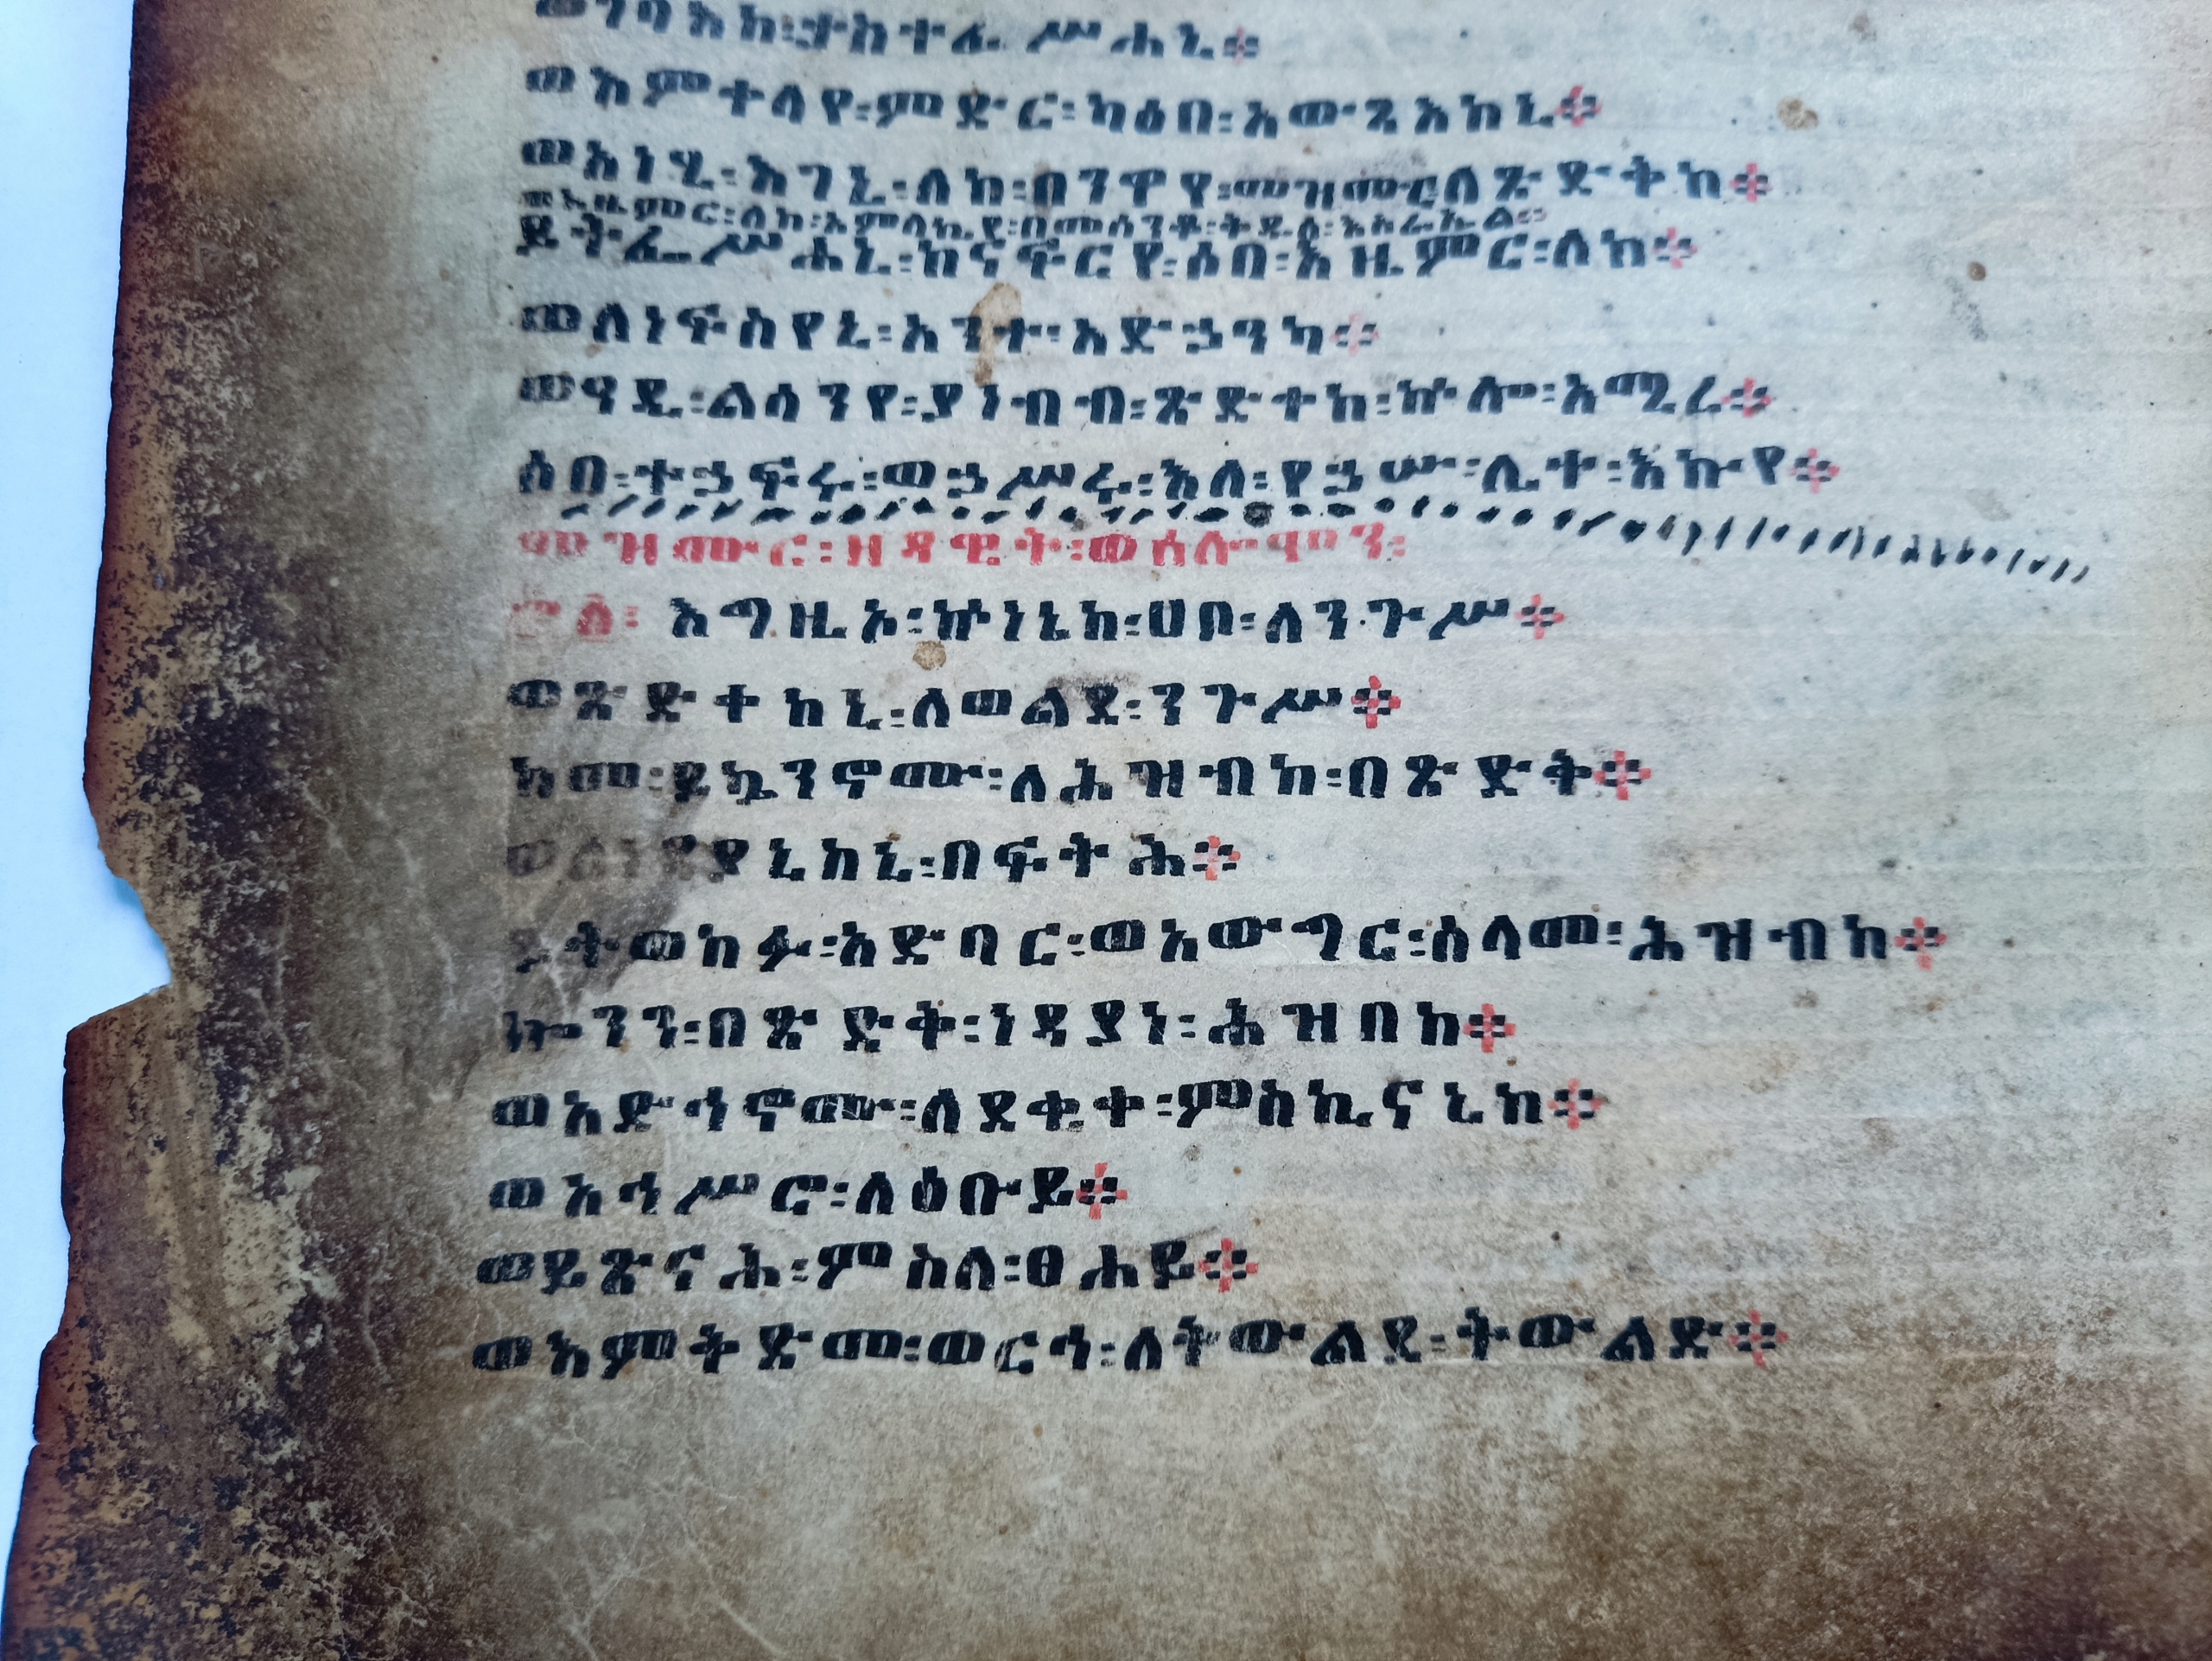 ወገባእከ፡ታስተፌሥሐኒ፨
ወእምተላየ፡ምድር፡ካዕበ፡አውጻእከኒ፨
ወአነሂ፡እገኒ፡ለከ፡በንዋየ፡መዝሙር፡ለጽድትከ፨
ወእዜምር፡ለከ፡አምላኪየ፡በመሰንቆ፡ቅዱሰ፡እስራኤል፨
ይትፌሥሓኒ፡ከናፍርየ፡ሶበ፡እዜምር፡ለከ፨
ወለነፍስየኒ፡አንተ፡አድኃንካ፨
ወዓዲ፡ልሳንየ፡ያነብብ፡ጽድተከ፡ኵሎ፡አሚረ፨
ሶበ፡ተኃፍሩ፡ወኃሥሩ፡እለ፡የኃሡ፡ሊተ፡እኩየ፨
መዝሙር፡ዘዳዊት፡ወሰሎሞን፡
እግዚኦ፡ኵነኔከ፡ሀቦ፡ለንጉሥ፨
ወጽድተከኒ፡ለወልደ፡ንጉሥ፨
ከመ፡ይኰንኖሙ፡ለሕዝብከ፡በጽድቅ፨
ወለነዳያኒከኒ፡በፍትሕ፨
ይትወከፉ፡አድባር፡ወአውግር፡ሰላመ፡ሕዝብከ፨
ኰንን፡በጽድቅ፡ነዳያነ፡ሕዝበከ፨
ወአድኅኖሙ፡ለደቂቀ፡ምስኪናኒከ፨
ወአኅሥሮ፡ለዕቡይ፨
ወይጽናሕ፡ምስለ፡ፀሐይ፨
ወእምቅድመ፡ወርኅ፡ለትውልደ፡ትውልድ፨